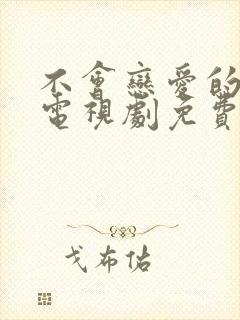 不會戀愛的
電視劇免費
戈布佑